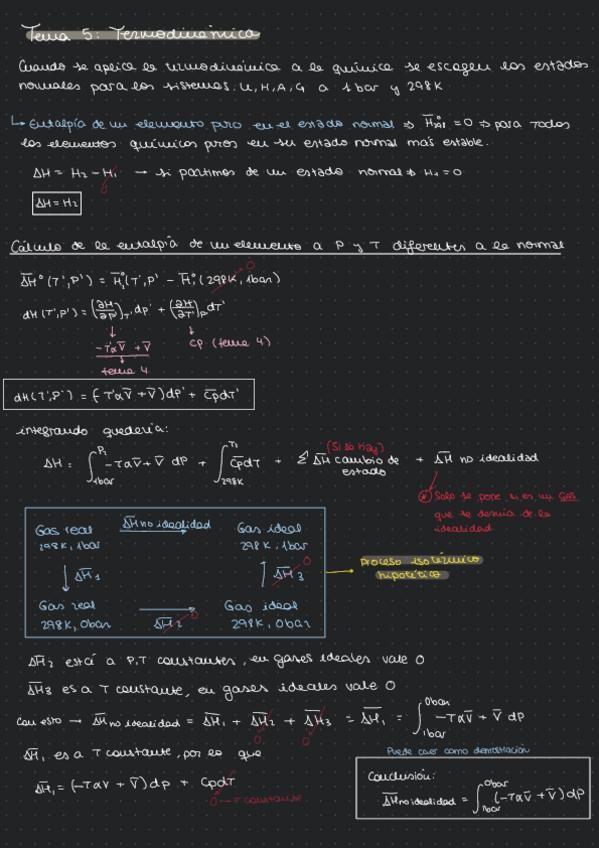 Tema 5: Termodinámica
Cuando se aplica la termodinámica a la química se escogen los estados
normales para los sistemas. U, H, A, G a 1 bar y 298K
↳ Entalpía de un elemento puro en el estado normal ⇒ H̅°₂₉₈,₁ = 0 ⇒ para todos
los elementos químicos puros en su estado normal más estable.
ΔH = H₂ - H₁ → si partimos de un estado normal ⇒ H₁ = 0
0
ΔH = H₂
Cálculo de la entalpía de un elemento a P y T diferentes a la normal
ΔH̅°(T', P') = H̅°ᵢ(T', P' - H̅°ᵢ(298K, 1bar) 0
dH(T', P') = (∂H/∂P')T' dp' + (∂H/∂T')P dT'
-T'αV̅ + V̅ Cp (tema 4)
tema 4
dH(T', P') = (-T'αV̅ + V̅)dp' + C̅pdT'
integrando quedaría:
(Si se hay)
ΔH = ∫₁bar^P₁ -TαV̅ + V̅ dP + ∫₂₉₈K^T₁ C̅pdT + Σ ΔH̅ cambio de estado + ΔH̅ no idealidad
⊛ Solo se pone si es un Gas
que se desvía de la
idealidad
Gas real ΔH̅ no idealidad Gas ideal
298K, 1bar 298K, 1bar
↓ ΔH̅1 ↑ ΔH̅3 0
Proceso isotérmico
hipotético
Gas real → Gas ideal
298K, 0bar ΔH̅2 0 298K, 0bar
ΔH̅2 está a P,T constantes, en gases ideales vale 0
ΔH̅3 es a T constante, en gases ideales vale 0
Con esto → ΔH̅ no idealidad = ΔH̅1 + ΔH̅2 + ΔH̅3 = ΔH̅1 = ∫₁bar^0bar -TαV̅ + V̅ dP
0 0
ΔH̅1 es a T constante, por lo que
Puede caer como demostración
ΔH̅1 = (-TαV + V̅)dp + CpdT
0 → T constante
Conclusión:
ΔH̅ no idealidad = ∫₁bar^0bar (-TαV̅ + V̅)dP